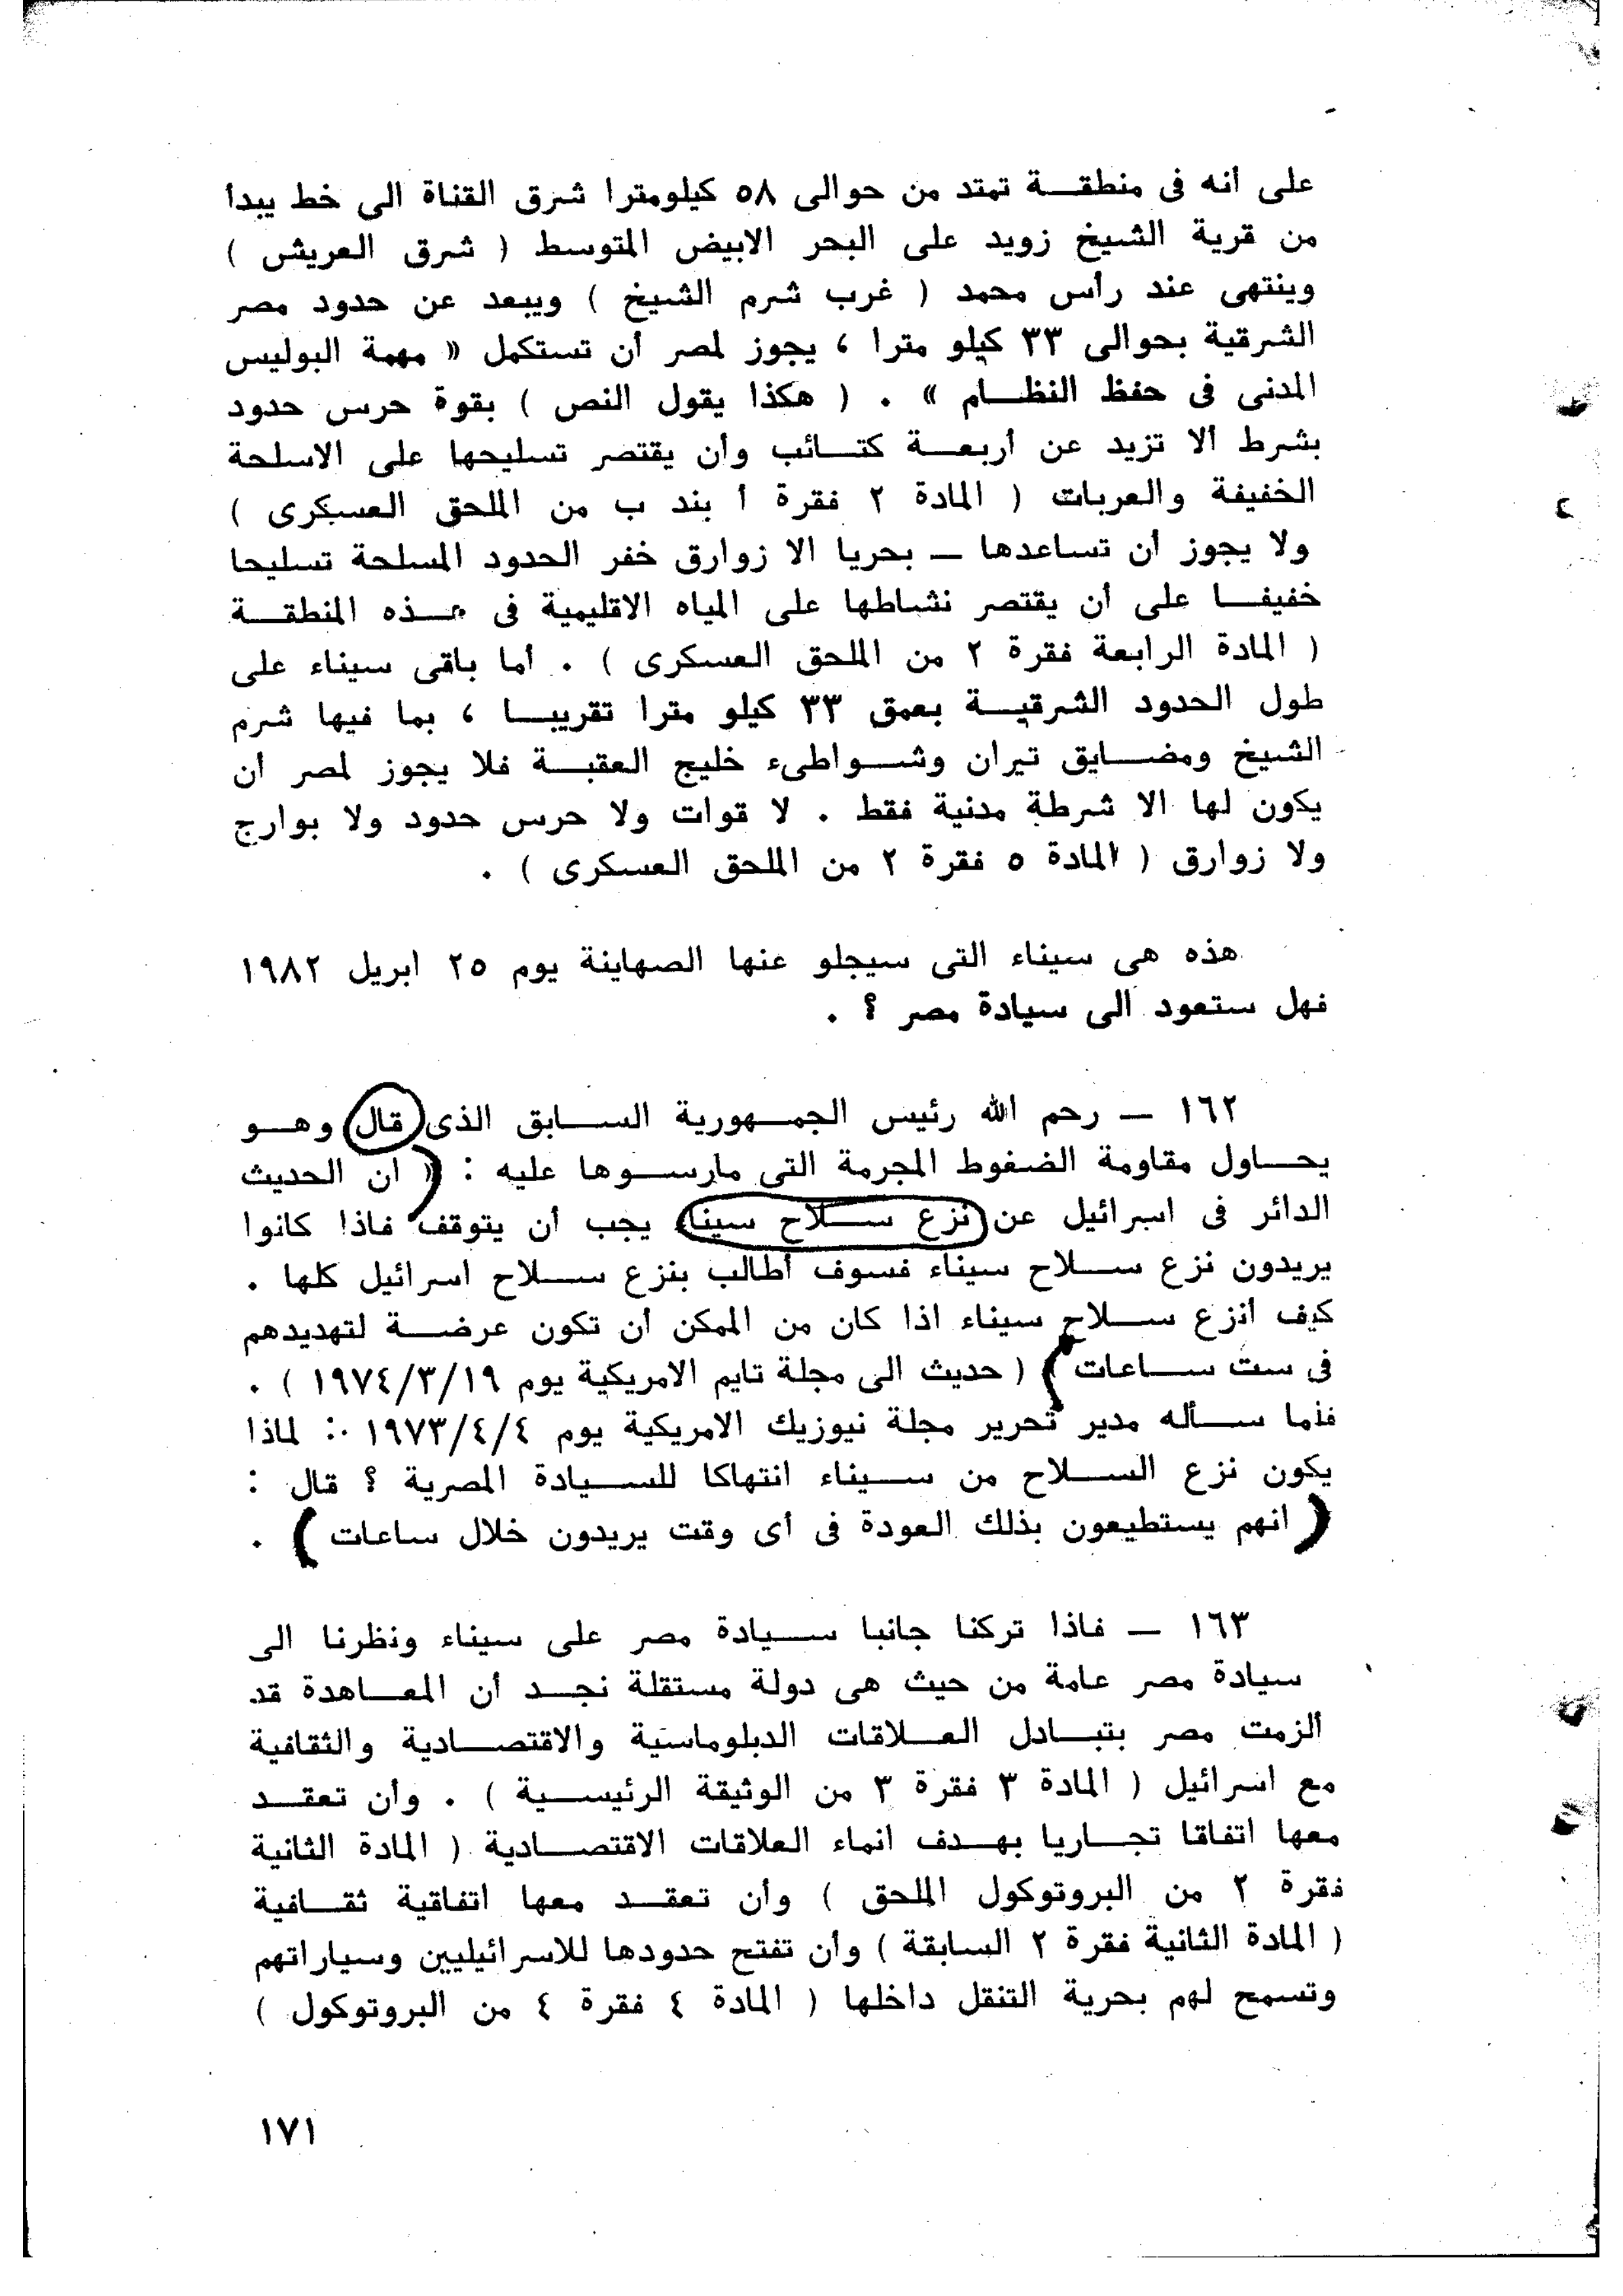 على أنه فى منطقة تمتد من حوالى ٥٨ كيلومترا شرق القناة الى خط يبدأ
من قرية الشيخ زويد على البحر الابيض المتوسط ( شرق العريش )
وينتهى عند رأس محمد ( غرب شرم الشيخ ) ويبعد عن حدود مصر
الشرقية بحوالى ٣٣ كيلو مترا ، يجوز لمصر أن تستكمل « مهمة البوليس
المدنى فى حفظ النظام » . ( هكذا يقول النص ) بقوة حرس حدود
بشرط ألا تزيد عن أربعة كتائب وأن يقتصر تسليحها على الاسلحة
الخفيفة والعربات ( المادة ٢ فقرة أ بند ب من الملحق العسكرى )
ولا يجوز أن تساعدها — بحريا الا زوارق خفر الحدود المسلحة تسليحا
خفيفا على أن يقتصر نشاطها على المياه الاقليمية فى هذه المنطقة
( المادة الرابعة فقرة ٢ من الملحق العسكرى ) . أما باقى سيناء على
طول الحدود الشرقية بعمق ٣٣ كيلو مترا تقريبا ، بما فيها شرم
الشيخ ومضايق تيران وشواطىء خليج العقبة فلا يجوز لمصر أن
يكون لها الا شرطة مدنية فقط . لا قوات ولا حرس حدود ولا بوارج
ولا زوارق ( المادة ٥ فقرة ٢ من الملحق العسكرى ) .
هذه هى سيناء التى سيجلو عنها الصهاينة يوم ٢٥ ابريل ١٩٨٢
فهل ستعود الى سيادة مصر ؟ .
١٦٢ — رحم الله رئيس الجمهورية السابق الذى قال وهو
يحاول مقاومة الضغوط المجرمة التى مارسوها عليه : « ان الحديث
الدائر فى اسرائيل عن نزع سلاح سيناء يجب أن يتوقف فاذا كانوا
يريدون نزع سلاح سيناء فسوف أطالب بنزع سلاح اسرائيل كلها .
كيف أنزع سلاح سيناء اذا كان من الممكن أن تكون عرضة لتهديدهم
فى ست ساعات ) ( حديث الى مجلة تايم الامريكية يوم ١٩٧٤/٣/١٩ ) .
فلما سأله مدير تحرير مجلة نيوزيك الامريكية يوم ١٩٧٣/٤/٤ : لماذا
يكون نزع السلاح من سيناء انتهاكا للسيادة المصرية ؟ قال :
( انهم يستطيعون بذلك العودة فى أى وقت يريدون خلال ساعات ) .
١٦٣ — فاذا تركنا جانبا سيادة مصر على سيناء ونظرنا الى
سيادة مصر عامة من حيث هى دولة مستقلة نجد أن المعاهدة قد
ألزمت مصر بتبادل العلاقات الدبلوماسية والاقتصادية والثقافية
مع اسرائيل ( المادة ٣ فقرة ٣ من الوثيقة الرئيسية ) . وأن تعقد
معها اتفاقا تجاريا بهدف انماء العلاقات الاقتصادية ( المادة الثانية
فقرة ٢ من البروتوكول الملحق ) وأن تعقد معها اتفاقية ثقافية
( المادة الثانية فقرة ٢ السابقة ) وأن تفتح حدودها للاسرائيليين وسياراتهم
وتسمح لهم بحرية التنقل داخلها ( المادة ٤ فقرة ٤ من البروتوكول )
١٧١